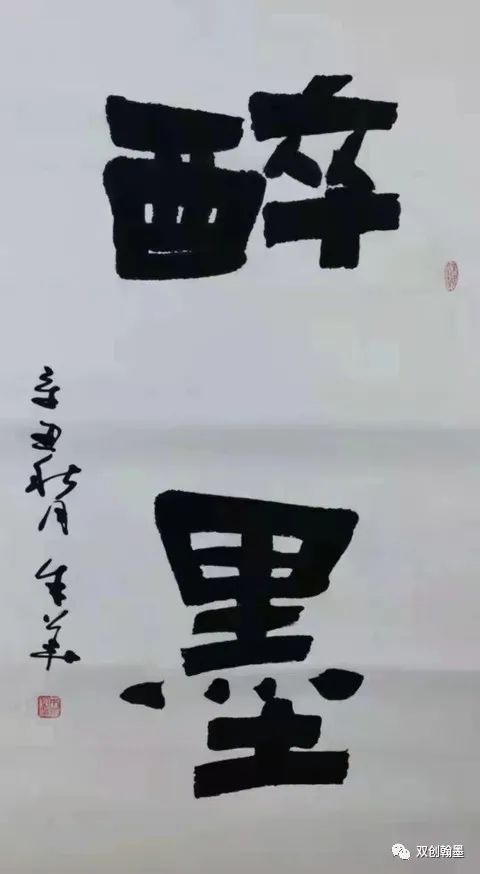 醉墨
辛丑秋月 朱华
双创翰墨